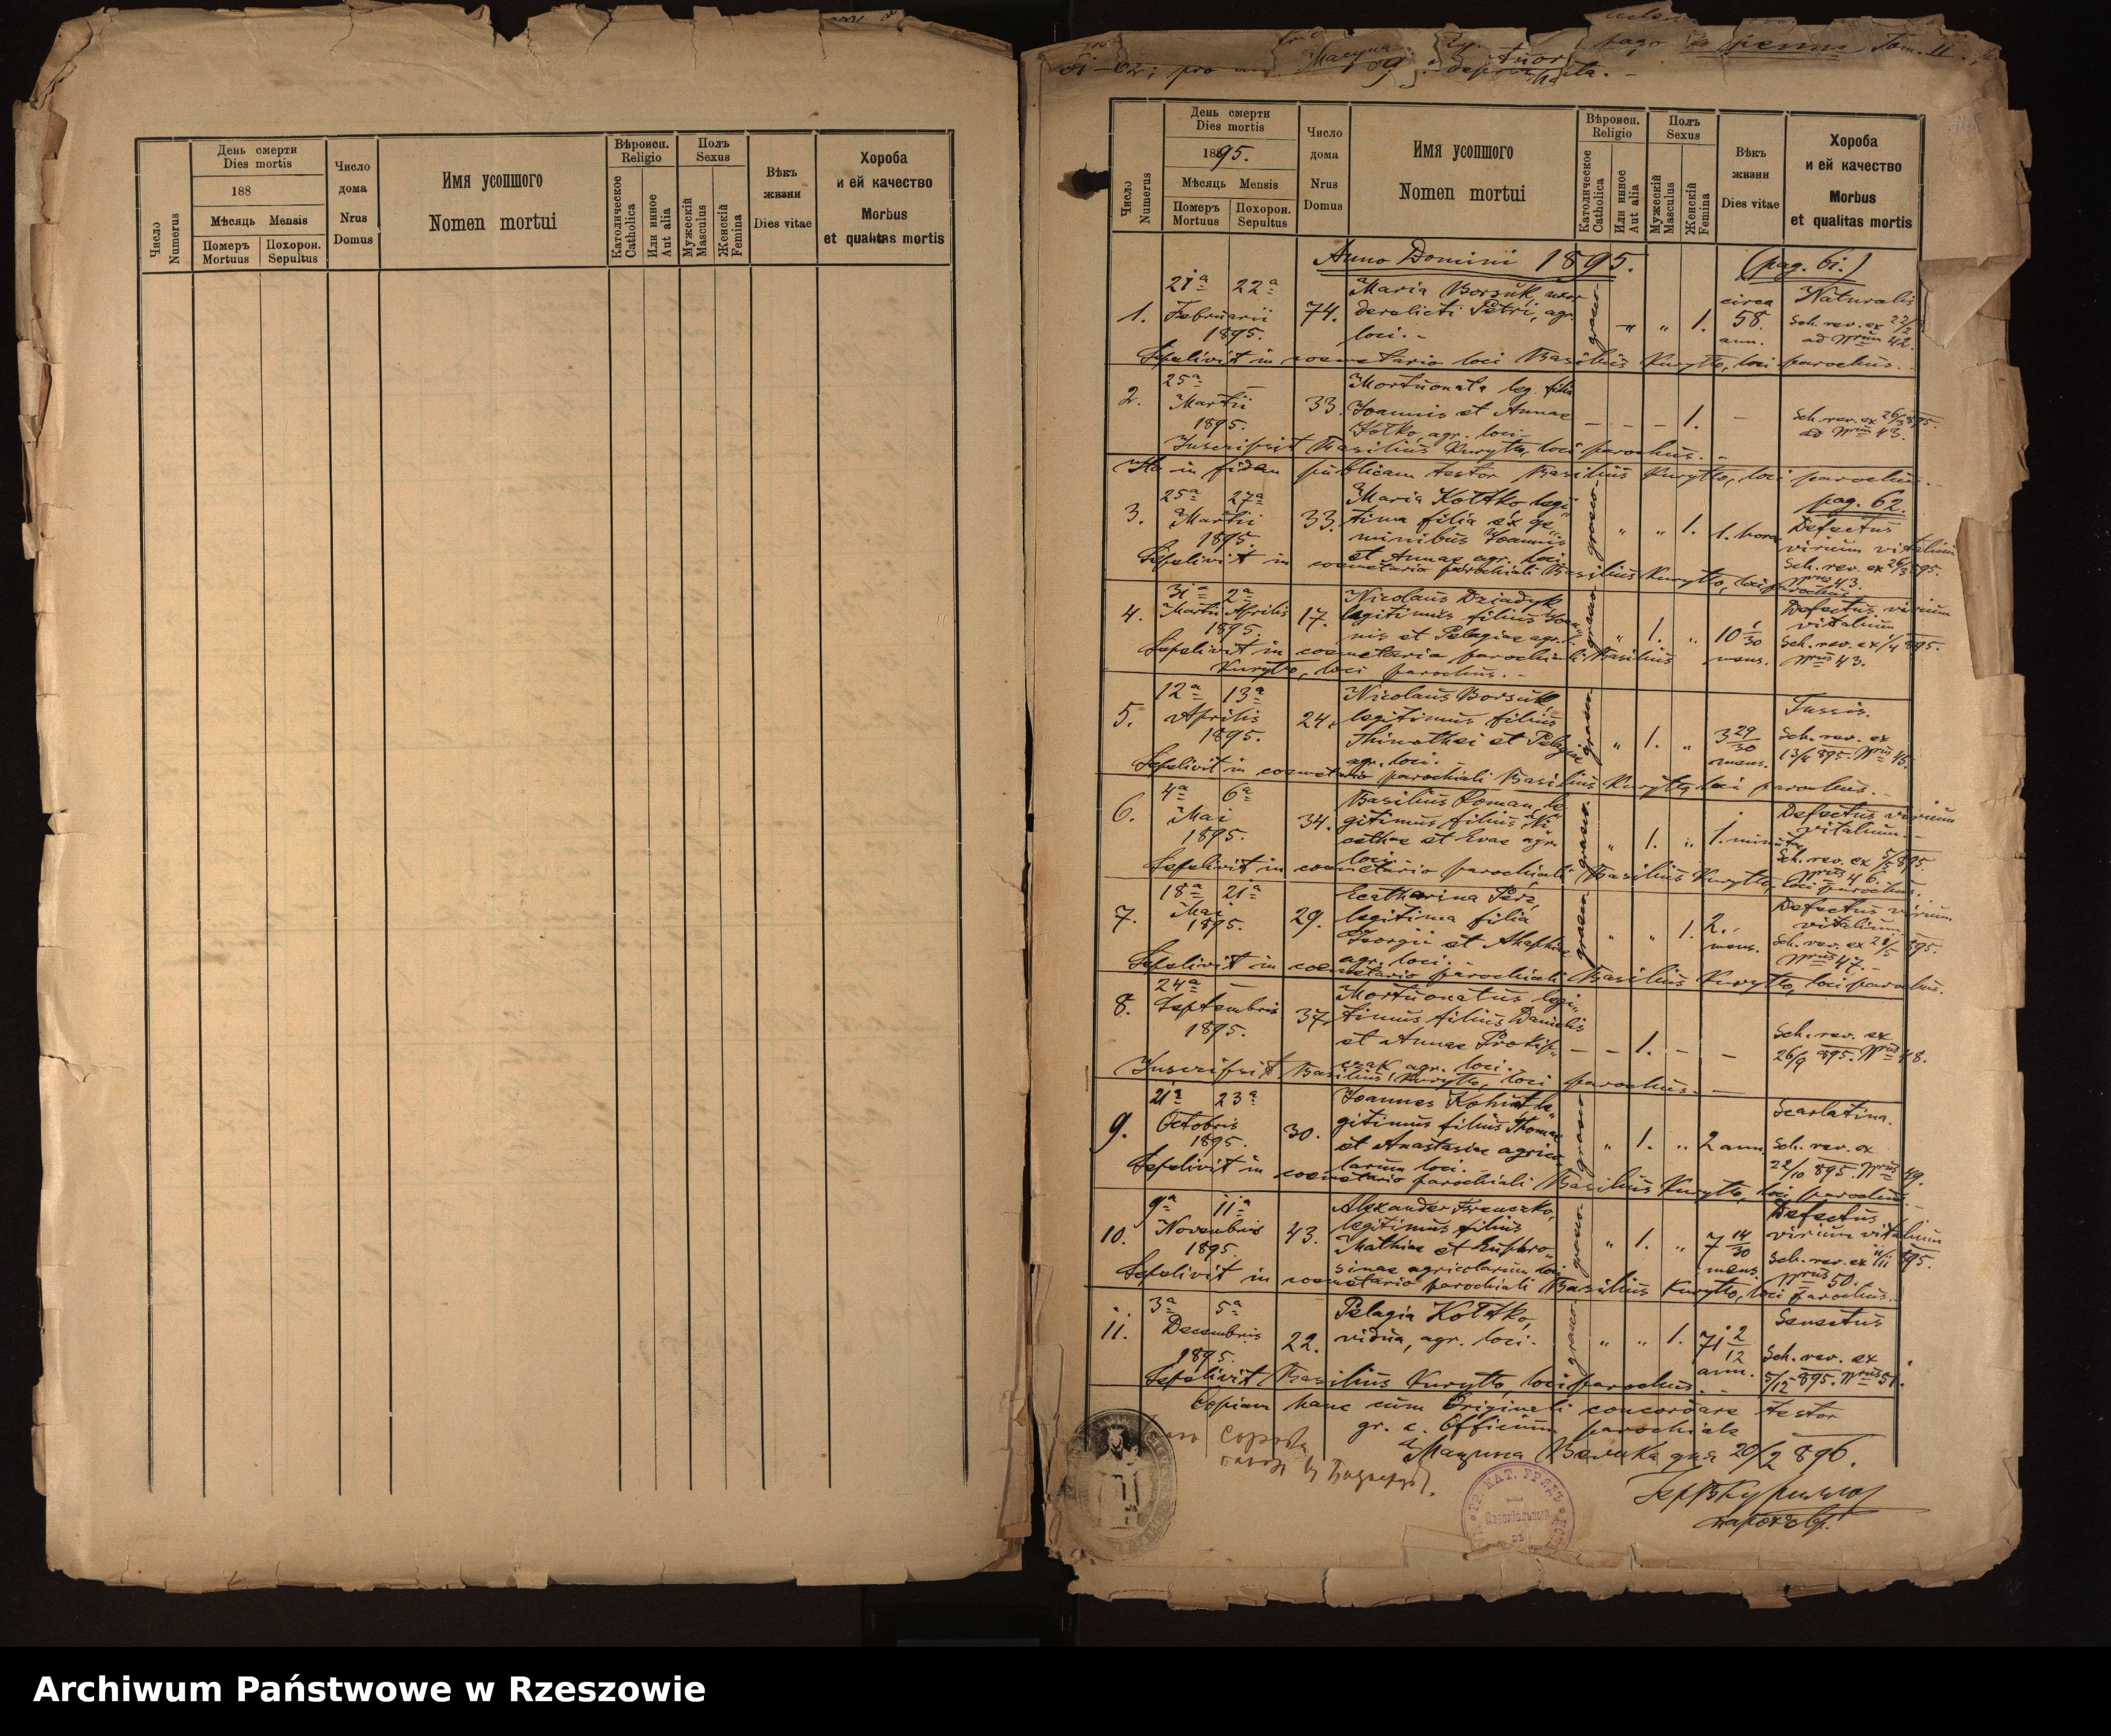 День смерти
Dies mortis
188
Мѣсяць Mensis
Померъ
Mortuus
Похорон.
Sepultus
Число
Numerus
Число
дома
Nrus
Domus
Имя усопшого
Nomen mortui
Вѣроисп.
Religio
Католическое
Catholica
Или инное
Aut alia
Полъ
Sexus
Мужескій
Masculus
Женскій
Femina
Вѣкъ
жизни
Dies vitae
Хороба
и ей качество
Morbus
et qualitas mortis
pro
Tom. II
Число
Numerus
День смерти
Dies mortis
1895.
Мѣсяць Mensis
Померъ
Mortuus
Похорон.
Sepultus
Число
дома
Nrus
Domus
Имя усопшого
Nomen mortui
Вѣроисп.
Religio
Католическое
Catholica
Или инное
Aut alia
Полъ
Sexus
Мужескій
Masculus
Женскій
Femina
Вѣкъ
жизни
Dies vitae
Хороба
и ей качество
Morbus
et qualitas mortis
Anno Domini 1895. (pag. 61.)
21ª 22ª Maria Borsuk, uxor circa Naturalis
1. Februarii 74. derelicti Petri, agr. graeco " " 1. 58. Sch. rev. ex 22/2
1895. loci. - ann. ad Nrum 42.
Sepelivit in coemetario loci Basilius Kuryłło, loci parochus. -
25ª — Mortuonata leg. filia
2. Martii 33. Joannis et Annae — — — 1. — Sch. rev. ex 26/3 895.
1895. agr. loci - ad Nrum 43.
Inscripsit Basilius Kuryłło, loci parochus. -
Ita in fidem publicam testor Basilius Kuryłło, loci parochus. -
25ª 27ª Maria Kołtko legi- pag. 62.
3. Martii 33. tima filia ex ge- graeco " " 1. 1. hora Defectus
1895. minibus Joannis virium vitalium
et Annae agr. loci Sch. rev. ex 26/3 895.
Nrus 43.
Sepelivit in coemetario parochiali Basilius Kuryłło, loci parochus.
31ª 2ª Nicolaus Dziadyk Defectus virium
4. Martii Aprilis 17. legitimus filius Joan- graeco " 1. " 10 1/30 vitalium
1895. nis et Pelagiae agr. l. mens. Sch. rev. ex 1/4 895.
Nrus 43.
Sepelivit in coemetario parochiali Basilius
Kuryłło, loci parochus. -
12ª 13ª Nicolaus Borsuk, Tussis.
5. Aprilis 24. legitimus filius graeco " 1. " 3 29/30 Sch. rev. ex
1895. Thimothei et Pelagiae mens. 13/4 895. Nrus 45.
agr. loci. -
Sepelivit in coemetario parochiali Basilius Kuryłło, loci parochus. -
4ª 6ª Basilius Roman, le- Defectus virium
6. Mai 34. gitimus filius Ni- graeco. " 1. " 1. minuta vitalium. -
1895. cethae et Evae agr. Sch. rev. ex 5/5 895.
loci. - Nrus 46.
Sepelivit in coemetario parochiali Basilius Kuryłło, loci parochus.
18ª 21ª Ecatharina Perż, Defectus virium
7. Mai 29. legitima filia graeco " " 1. 2. vitalium.
1895. Georgii et Ahaphiae mens. Sch. rev. ex 21/5 895.
agr. loci. - Nrus 47. -
Sepelivit in coemetario parochiali Basilius Kuryłło, loci parochus.
24ª — Mortuonatus legi-
8. Septembris 37. timus filius Danielis Sch. rev. ex
1895. et Annae Prokip- — — 1. — — 26/9 895. Nrus 48.
czak agr. loci.
Inscripsit Basilius Kuryłło, loci parochus. —
21ª 23ª Joannes Kohut, le- Scarlatina.
9. Octobris 30. gitimus filius Thomae graeco " 1. " 2 ann. Sch. rev. ex
1895. et Anastasiae agrico- 22/10 895. Nrus 49.
larum loci. -
Sepelivit in coemetario parochiali Basilius Kuryłło, loci parochus. -
9ª 11ª Alexander Frenczko, Defectus
10. Novembris 43. legitimus filius graeco " 1. " 7 14/30 virium vitalium
1895. Mathiae et Euphro- mens. Sch. rev. ex 11/11 895.
sinae agricolarum loci Nrus 50.
Sepelivit in coemetario parochiali Basilius Kuryłło, loci parochus. -
3ª 5ª Pelagia Kołtko, Senectus
11. Decembris 22. vidua, agr. loci. graeco " " 1. 71 2/12 Sch. rev. ex
1895. ann. 5/12 895. Nrus 51.
Sepelivit Basilius Kuryłło, loci parochus. -
Copiam hanc cum Originali concordare testor
gr. c. Officium parochiale
Мацина Велика дня 20/2 896.
ГР. КАТ. УРЯДЪ
Archiwum Państwowe w Rzeszowie